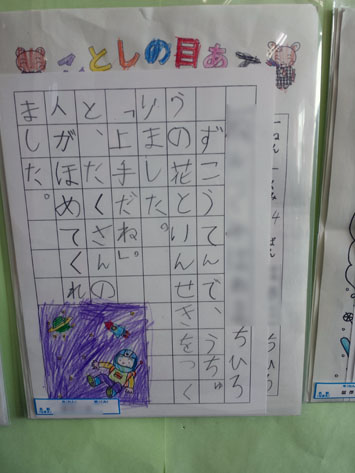 ことしの目あ
ちひろ
ずこうてんで、うちゅ
うの花といんせきをつく
りました。
「上手だね」。
と、たくさんの
人がほめてくれ
ました。